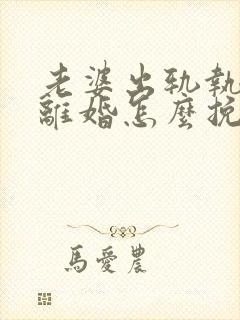 老婆出軌執
離婚怎麼挽
馬愛農